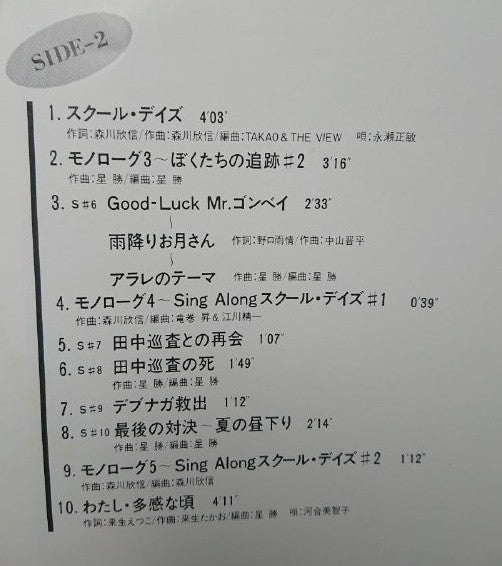 SIDE-2
1. スクール・デイズ 4'03"
作詞:森川欣信/作曲:森川欣信/編曲:TAKAO & THE VIEW 唄:永瀬正敏
2. モノローグ3〜ぼくたちの追跡♯2 3'16"
作曲:星 勝/編曲:星 勝
3. S♯6 Good-Luck Mr.ゴンベイ 2'33"
〜
雨降りお月さん 作詞:野口雨情/作曲:中山晋平
〜
アラレのテーマ 作曲:星 勝/編曲:星 勝
4. モノローグ4〜Sing Alongスクール・デイズ♯1 0'39"
作曲:森川欣信/編曲:竜巻 昇&江川精一
5. S♯7 田中巡査との再会 1'07"
6. S♯8 田中巡査の死 1'49"
作曲:星 勝/編曲:星 勝
7. S♯9 デブナガ救出 1'12"
8. S♯10 最後の対決〜夏の昼下り 2'14"
作曲:星 勝/編曲:星 勝
9. モノローグ5〜Sing Alongスクール・デイズ♯2 1'12"
作曲:森川欣信/編曲:森川欣信
10. わたし・多感な頃 4'11"
作詞:来生えつこ/作曲:来生たかお/編曲:星 勝 唄:河合美智子